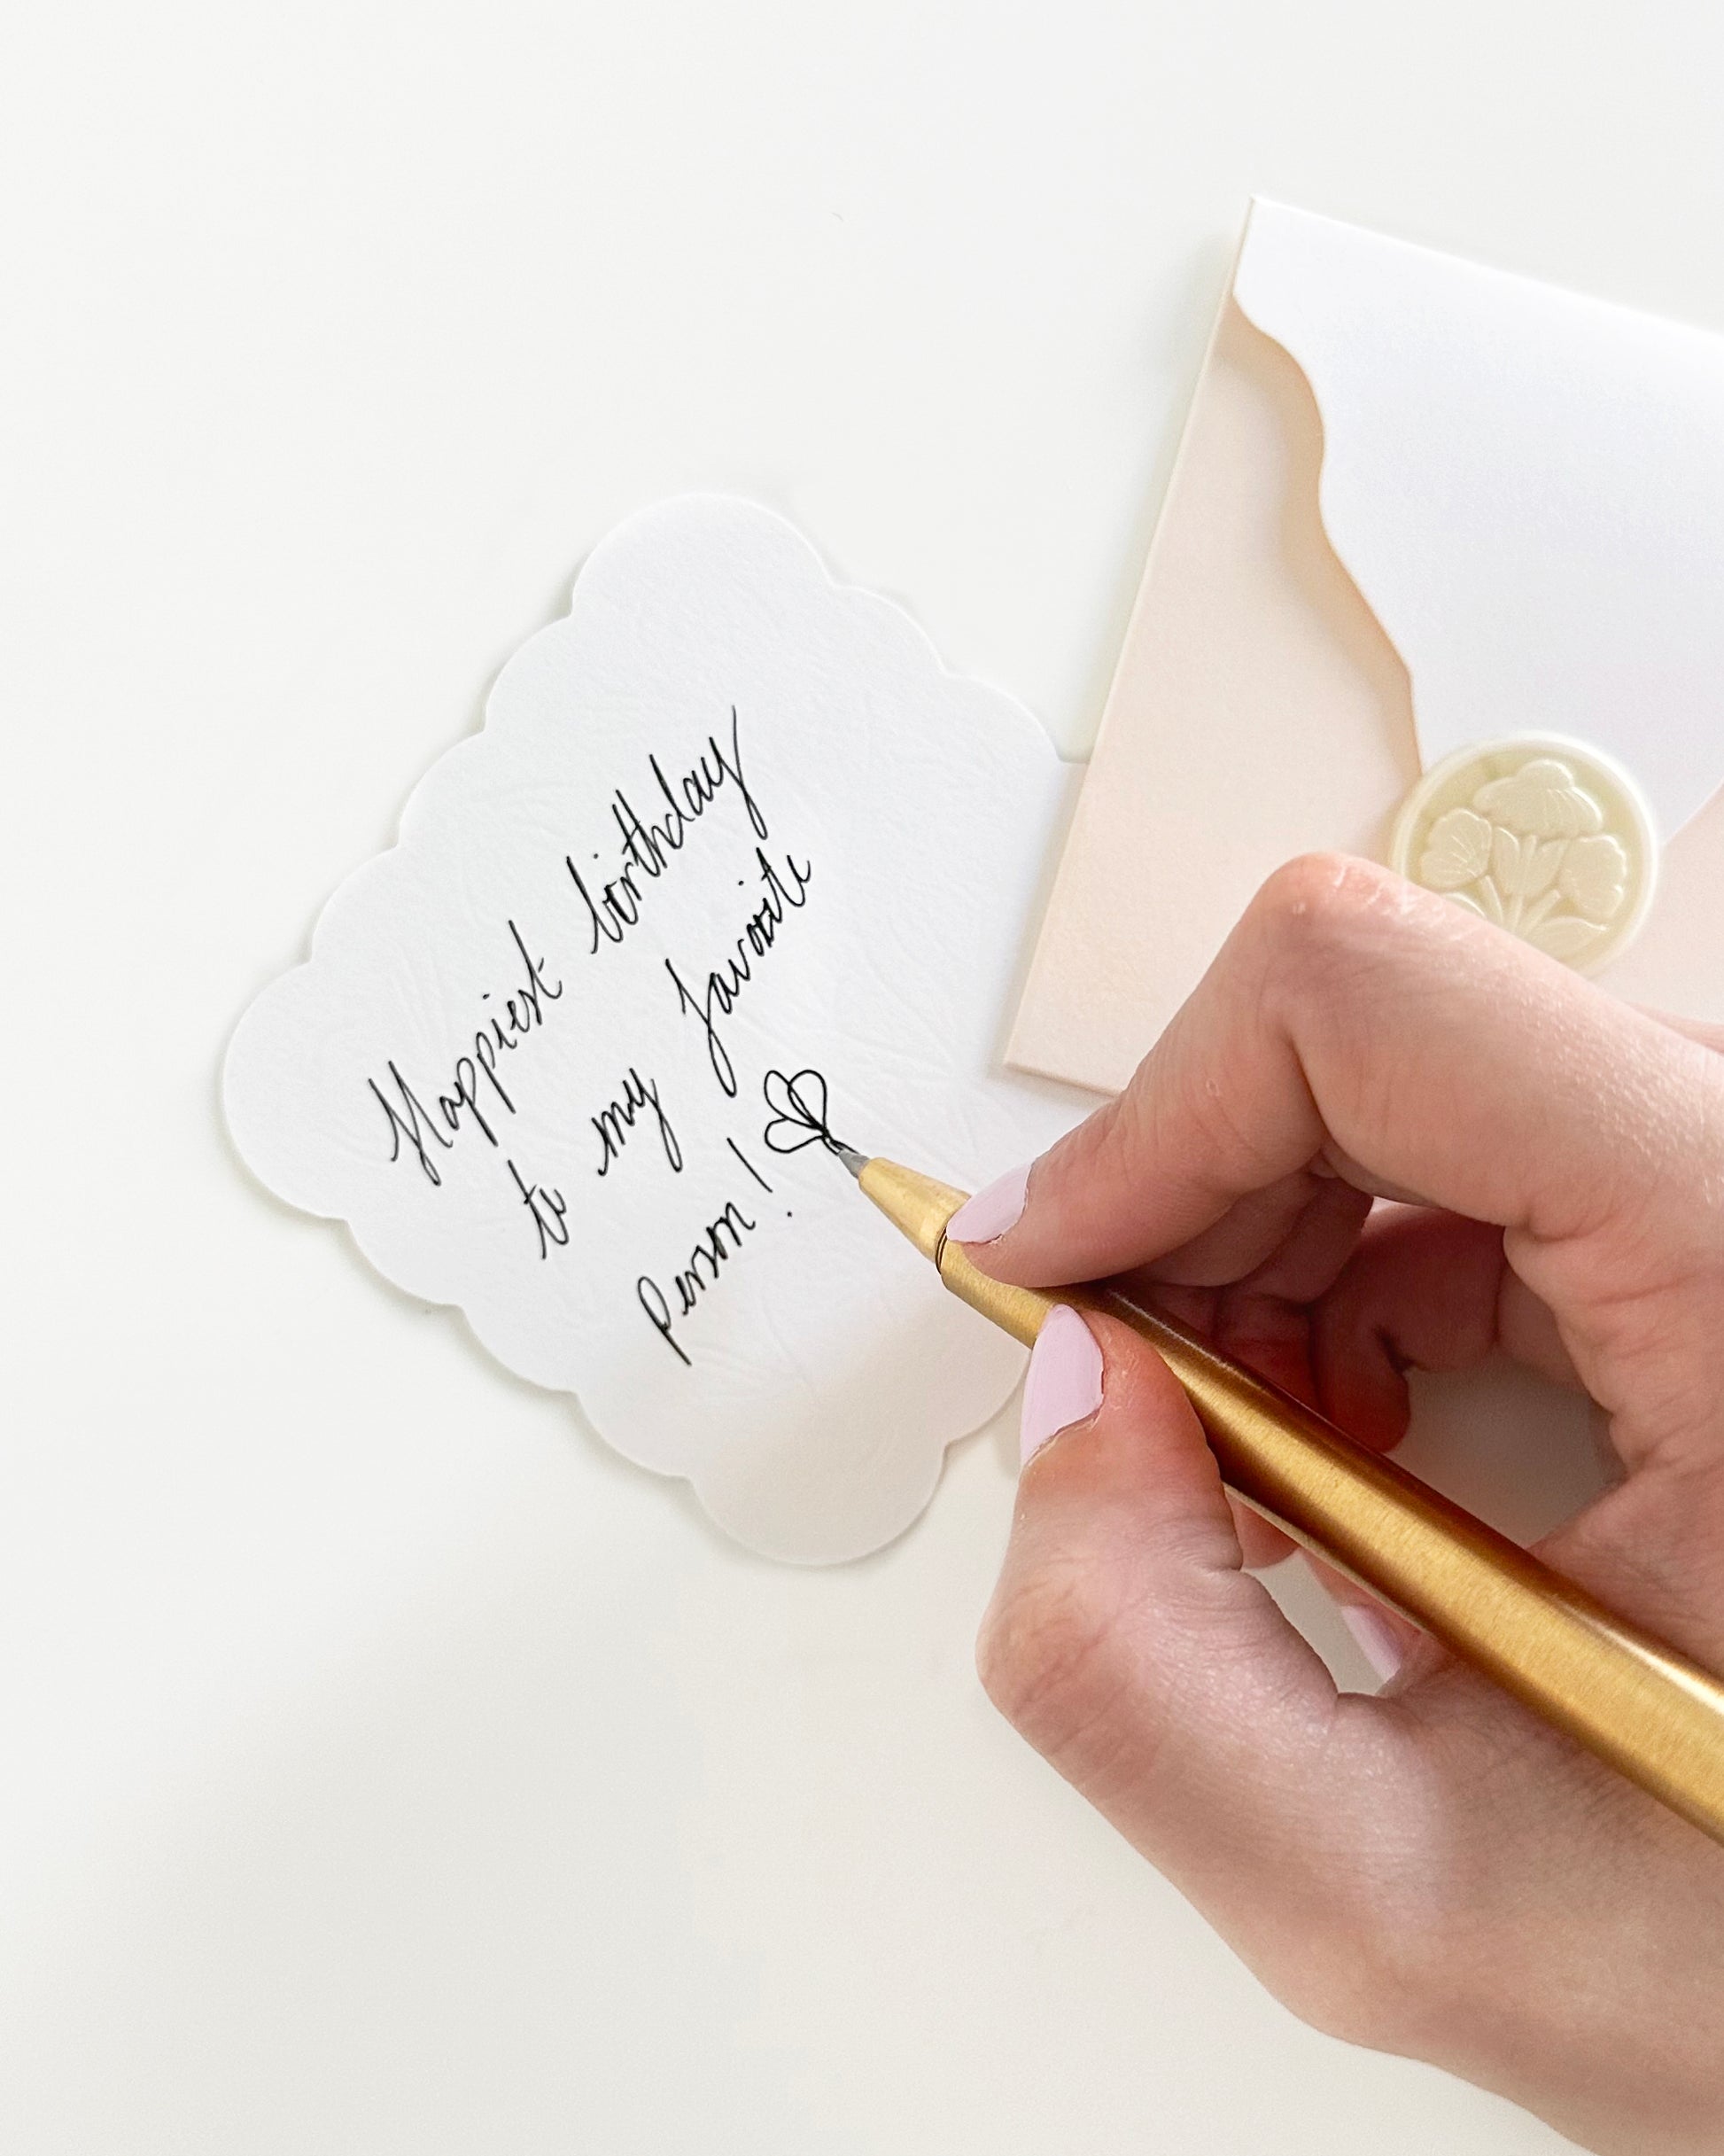 Happiest birthday
to my favorite
person!